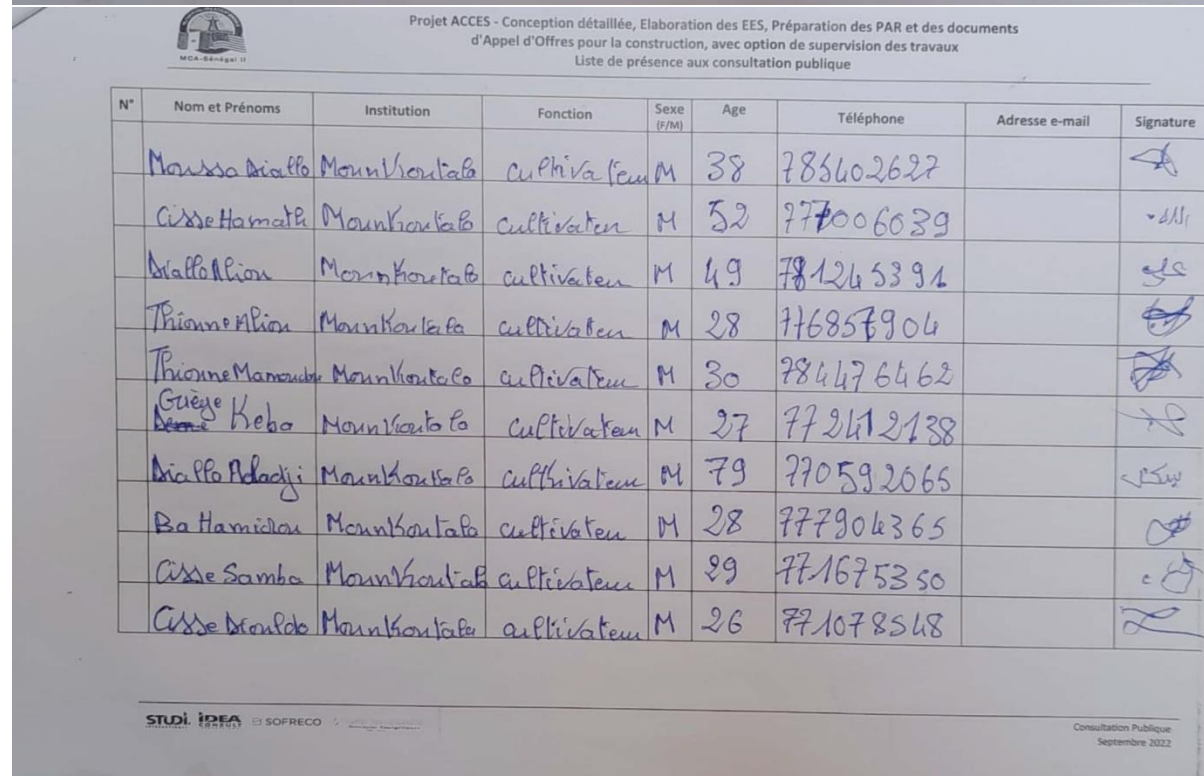 MCA-Sénégal II
Projet ACCES - Conception détaillée, Elaboration des EES, Préparation des PAR et des documents
d'Appel d'Offres pour la construction, avec option de supervision des travaux
Liste de présence aux consultation publique
N° Nom et Prénoms Institution Fonction Sexe (F/M) Age Téléphone Adresse e-mail Signature
Moussa Diallo Mounkoutala cultivateur M 38 785402627
Cisse Hamath Mounkoutala cultivateur M 52 777006039
Diallo Aliou Mounkoutala cultivateur M 49 781245391
Thionne Aliou Mounkoutala cultivateur M 28 776857904
Thionne Mamoudou Mounkoutala cultivateur M 30 784476462
Guèye Keba Mounkoutala cultivateur M 27 772412138
Diallo Aladji Mounkoutala culthivateur M 79 770592065
Ba Hamidou Mounkoutala cultivateur M 28 777904365
Cisse Samba Mounkoutala cultivateur M 29 771675350
Cisse Dioulde Mounkoutala cultivateur M 26 771078548
STUDI IDEA CONSULT SOFRECO
Consultation Publique
Septembre 2022